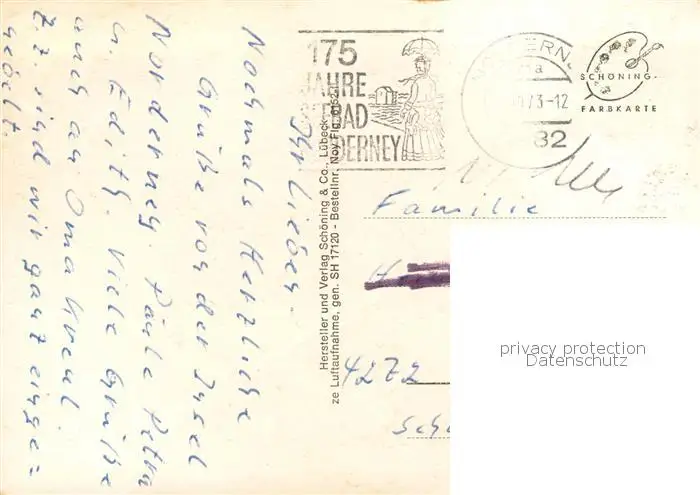 Ihr Lieben.
Nochmals Herzliche
Grüße von der Insel
Norderney. Paule Petra
u. Edith. Viele Grüße
auch an Oma
z.z. sind wir ganz einge=
175
JAHRE
BAD
DERNEY
82
SCHÖNING
FARBKARTE
Hersteller und Verlag Schöning & Co., Lübeck
ze Luftaufnahme, gen. SH 17120 - Bestellnr. Noy Flg.
Familie
4272
Sch
privacy protection
Datenschutz